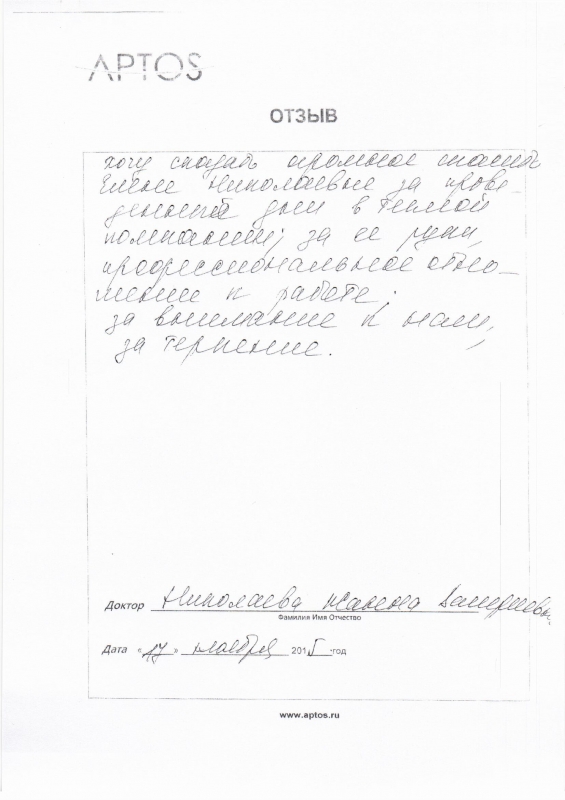 APTOS
ОТЗЫВ
хочу сказать огромное спасиб
Елене Николаевне за прове_
денный день в теплой
за ее руки,
профессиональное отно_
шение к работе;
за внимание к нам,
за терпение.
Доктор Николаева
Фамилия Имя Отчество
Дата «17» ноября 2015 год
www.aptos.ru